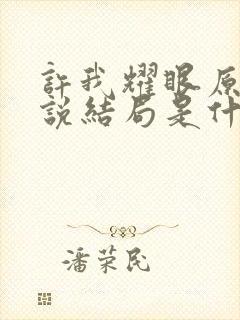 許我耀眼原
說結局是什
潘荣民